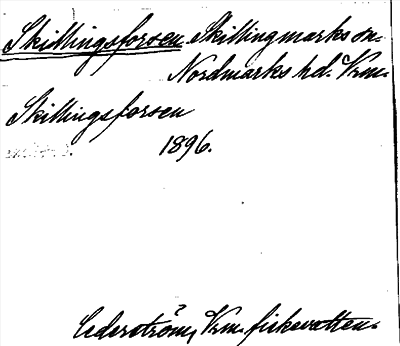 Skillingsforsen Skillingmarks sn.
Nordmarks hd. Vrm.
Skillingsforsen
1896.
Cederström, Vrm. fiskevatten.